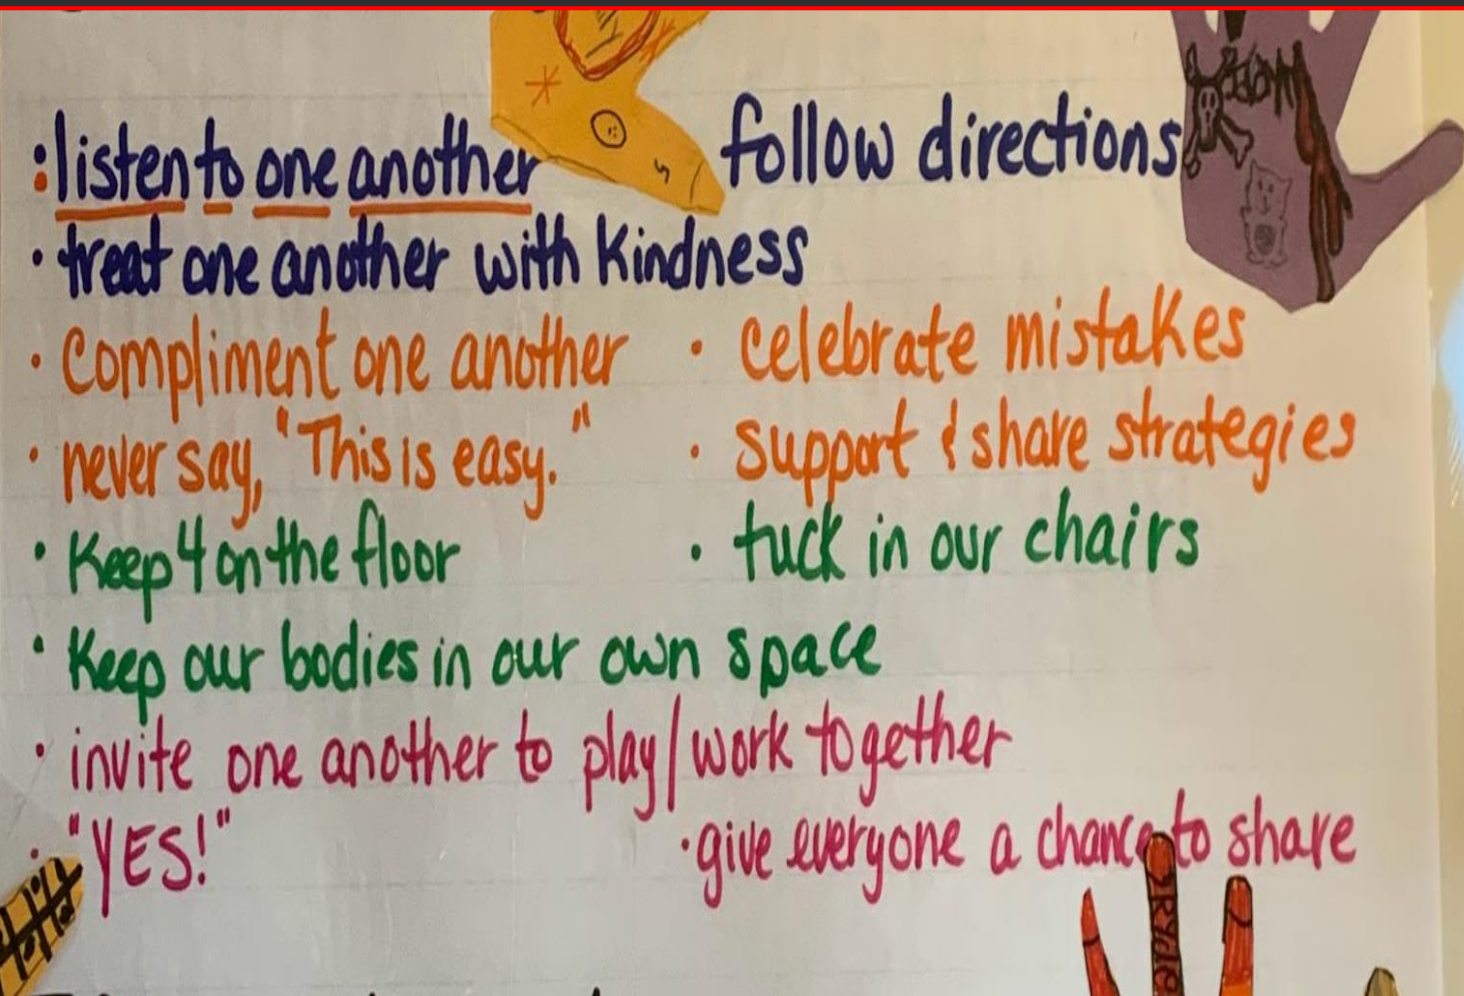 listen to one another
follow directions
• treat one another with kindness
• Compliment one another
• celebrate mistakes
• never say, "This is easy."
• support & share strategies
• Keep 4 on the floor
• tuck in our chairs
• Keep our bodies in our own space
• invite one another to play/work together
• "YES!"
• give everyone a chance to share